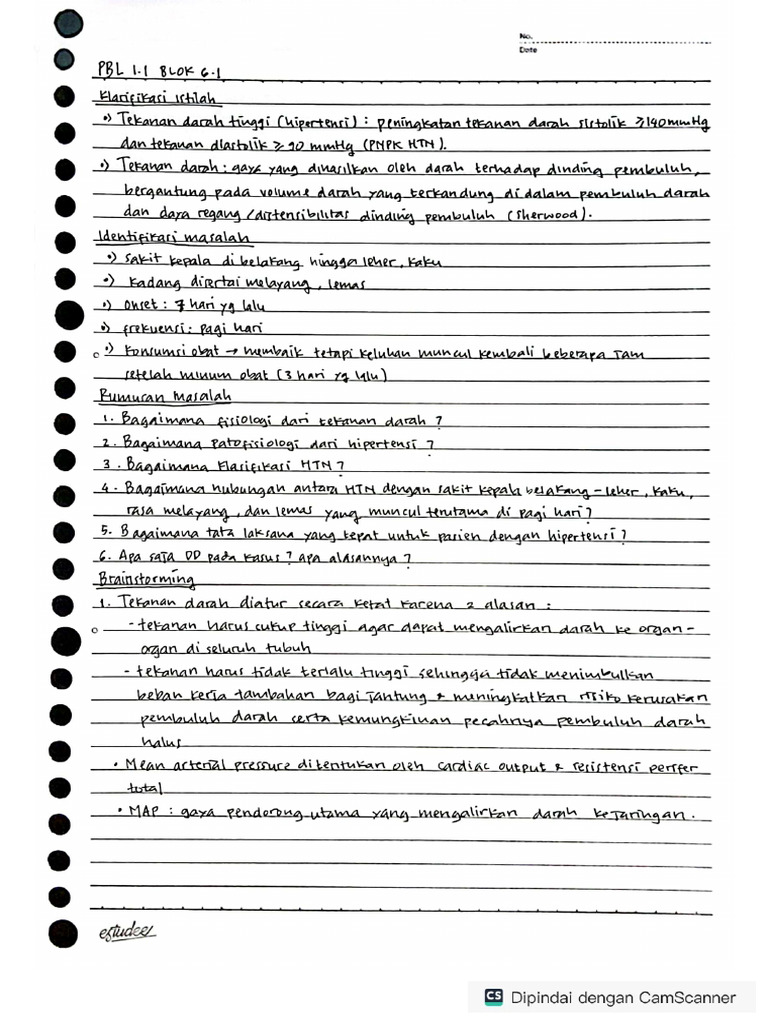 No.
Date
PBL 1.1 BLOK 6.1
Klarifikasi istilah
•) Tekanan darah tinggi (hipertensi) : peningkatan tekanan darah sistolik ≥140 mmHg
dan tekanan diastolik ≥ 90 mmHg (PNPK HTN).
•) Tekanan darah : gaya yang dihasilkan oleh darah terhadap dinding pembuluh,
bergantung pada volume darah yang terkandung di dalam pembuluh darah
dan daya regang/distensibilitas dinding pembuluh (Sherwood).
Identifikasi masalah
•) sakit kepala di belakang hingga leher, kaku
•) kadang disertai melayang, lemas
•) Onset : 7 hari yg lalu
•) frekuensi : pagi hari
•) Konsumsi obat → membaik tetapi keluhan muncul kembali beberapa jam
setelah minum obat (3 hari yg lalu)
Rumusan Masalah
1. Bagaimana fisiologi dari tekanan darah ?
2. Bagaimana patofisiologi dari hipertensi ?
3. Bagaimana klasifikasi HTN ?
4. Bagaimana hubungan antara HTN dengan sakit kepala belakang - leher, kaku,
rasa melayang, dan lemas yang muncul terutama di pagi hari ?
5. Bagaimana tata laksana yang tepat untuk pasien dengan hipertensi ?
6. Apa saja DD pada kasus ? apa alasannya ?
Brainstorming
1. Tekanan darah diatur secara ketat karena 2 alasan :
- tekanan harus cukup tinggi agar dapat mengalirkan darah ke organ-
organ di seluruh tubuh
- tekanan harus tidak terlalu tinggi sehingga tidak menimbulkan
beban kerja tambahan bagi jantung & meningkatkan risiko kerusakan
pembuluh darah serta kemungkinan pecahnya pembuluh darah
halus
• Mean arterial pressure ditentukan oleh cardiac output & resistensi perifer
total
• MAP : gaya pendorong utama yang mengalirkan darah ke jaringan.
estudee
CS Dipindai dengan CamScanner